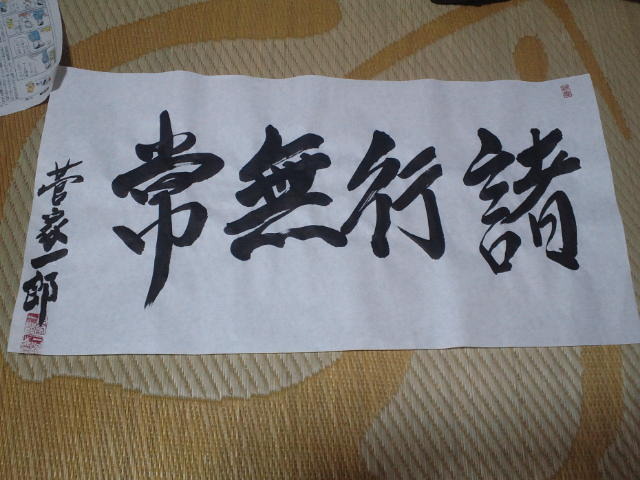 諸行無常
菅家一郎